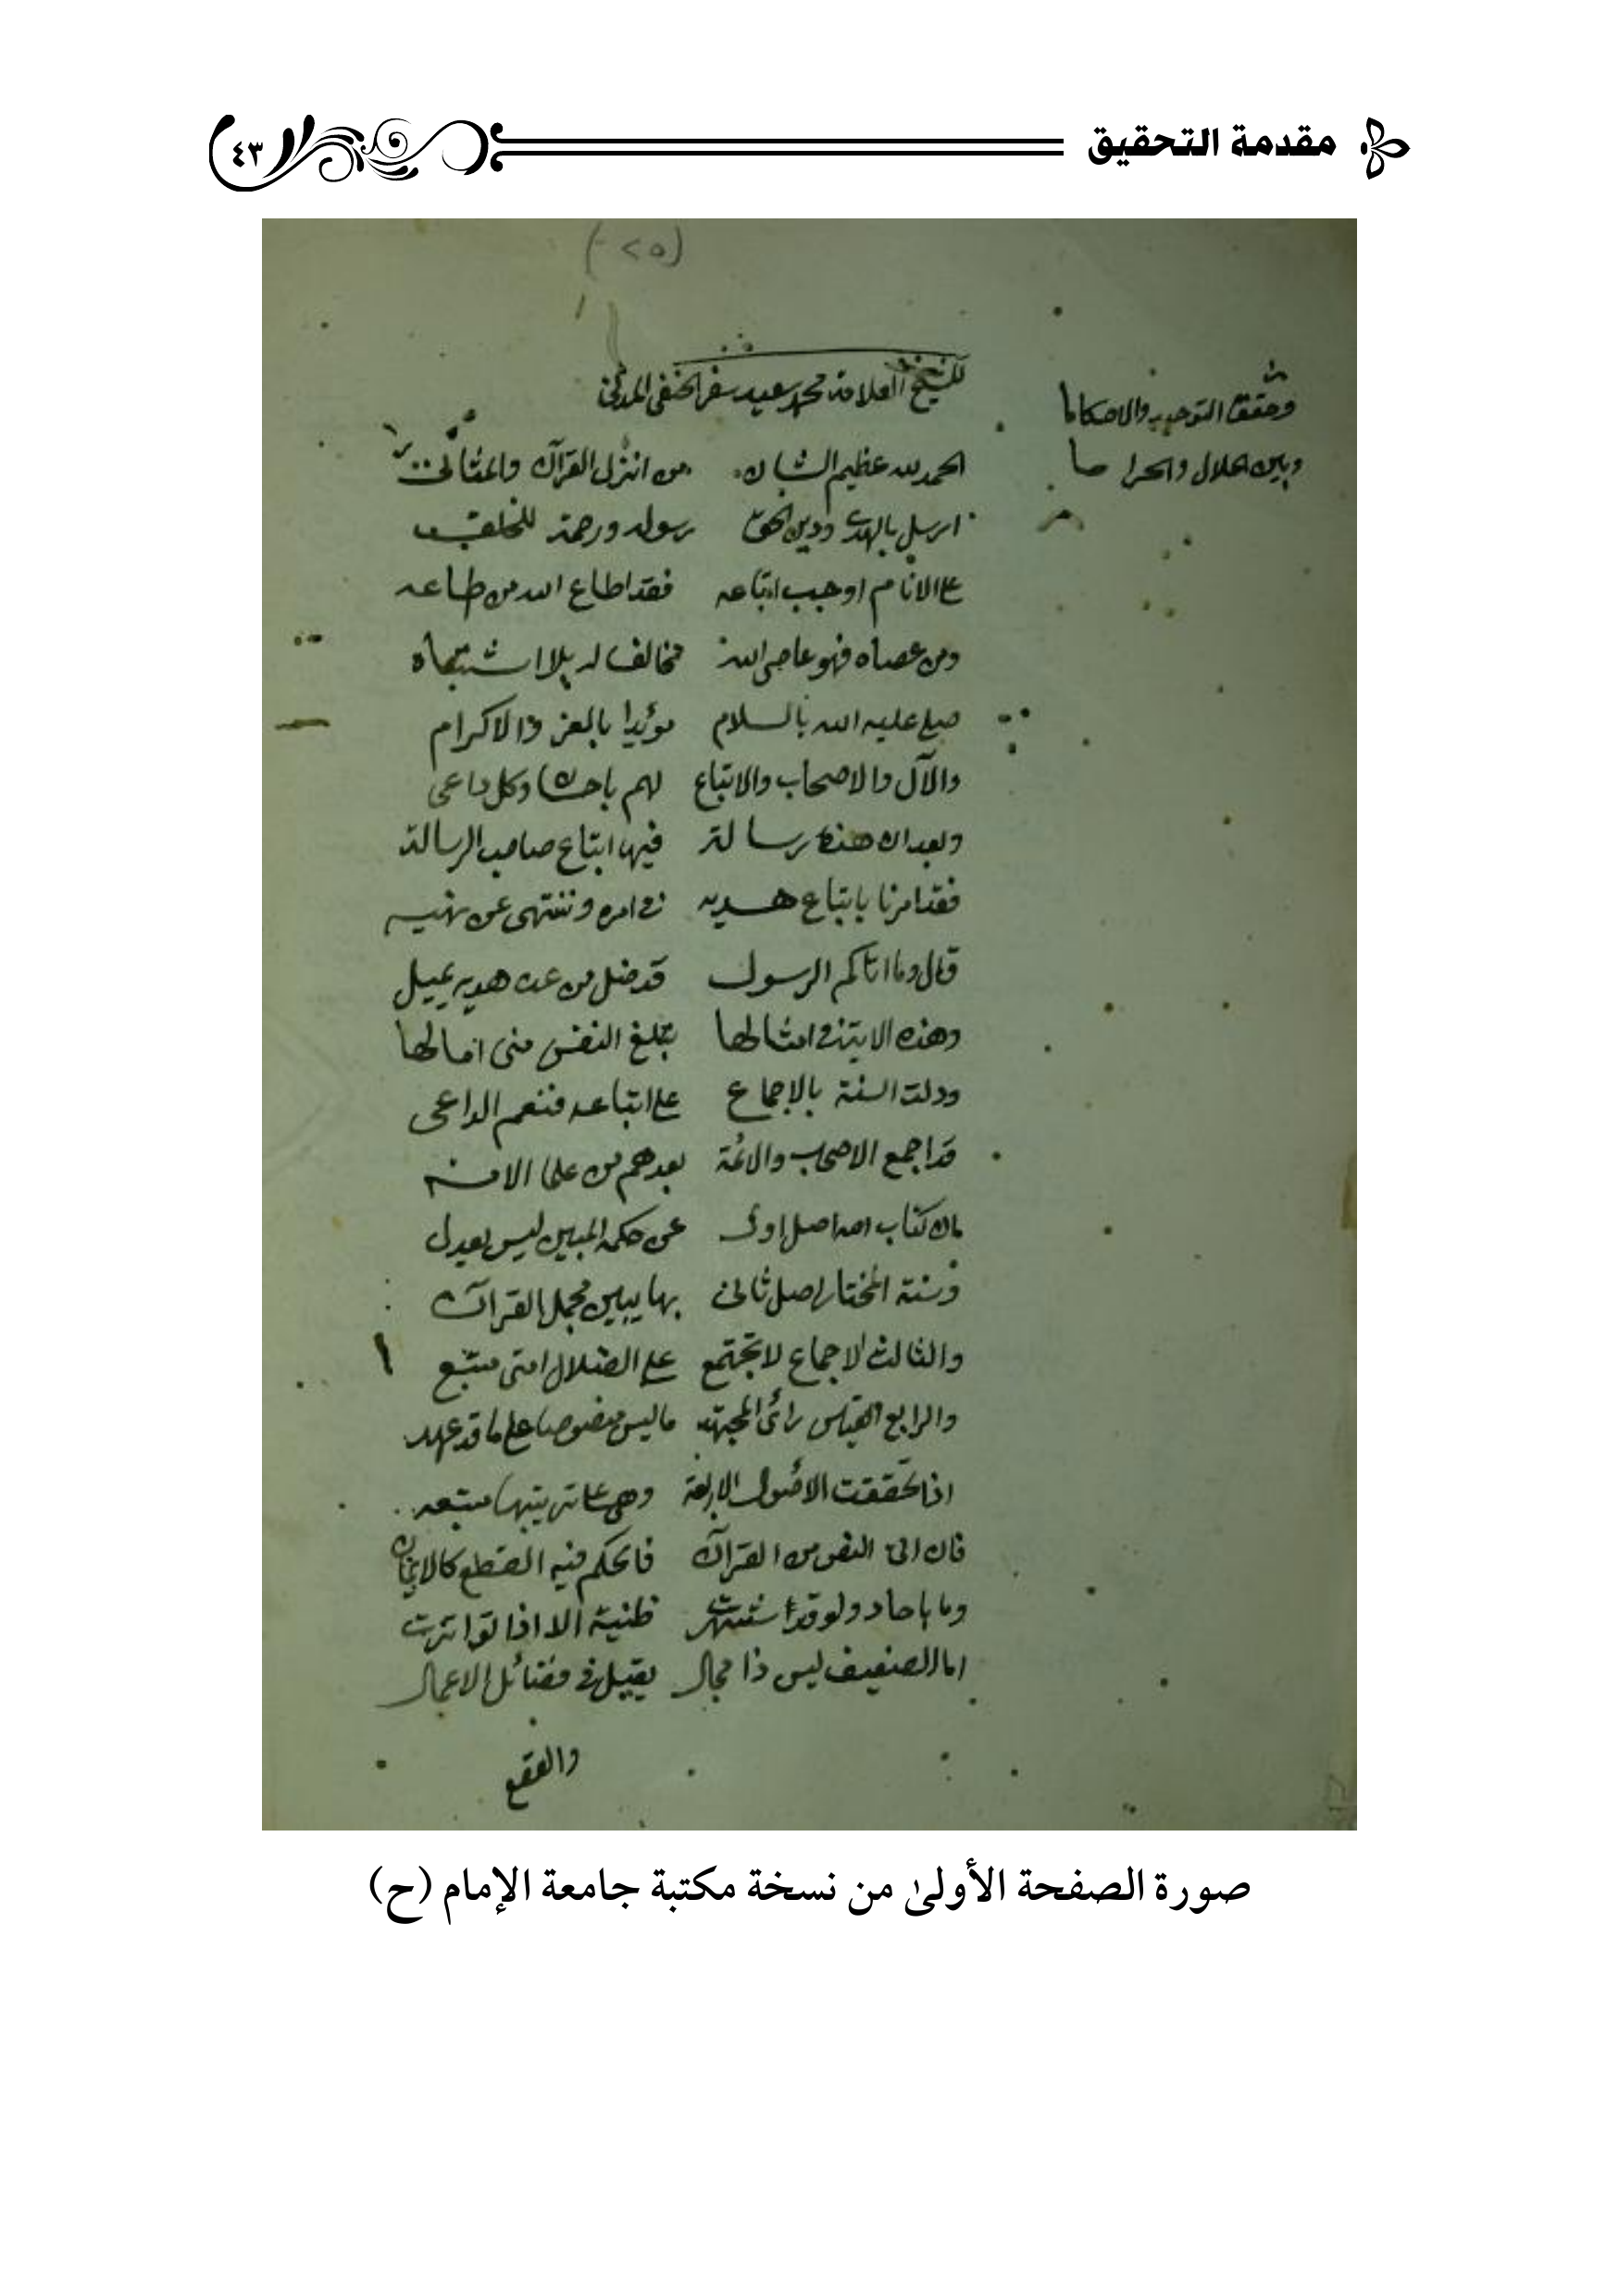 مقدمة التحقيق
٤٣
(٢٥)
للشيخ العلامة محمد سعيد سفر الحنفي المدني
وحقق التوحيد والاحكاما
وبين الحلال والحراما
الحمد لله عظيم الشان من انزل القرآن والمثاني
ارسل بالهدى ودين الحق رسوله ورحمة للخلق
على الانام اوجب اتباعه فقد اطاع الله من طاعه
ومن عصاه فهو عاصي الله مخالف له بلا اشتباه
صلى عليه الله بالسلام مؤيدا بالعز والاكرام
والآل والاصحاب والاتباع لهم باحسان وكل داعى
وبعد ان هذه رسالة فيها اتباع صاحب الرسالة
فقد امرنا باتباع هديه في امره وننتهى عن نهيه
قال وما اتاكم الرسول قد ضل من عن هديه يميل
وهذه الاية في امثالها تبلغ النفس منى امالها
ودلت السنة بالاجماع على اتباعه فنعم الداعى
قد اجمع الاصحاب والائمة بعدهم من علما الامة
بان كتاب الله اصل اول عن حكمه المبين ليس يعدل
وسنة المختار اصل ثانى بها يبين مجمل القرآن
والثالث الاجماع لا تجتمع على الضلال امتى متبع
والرابع القياس رأى المجتهد ما ليس منصوصا على ما قد عهد
اذا تحققت الاصول الاربعة وهى على ترتيبها متبعه
فان اتى النص من القرآن فالحكم فيه القطع كالايمان
وما باحاد ولو قد اشتهرت ظنية الا اذا تواترت
اما الضعيف ليس ذا مجال يقبل في فضائل الاعمال
والقطع
صورة الصفحة الأولىٰ من نسخة مكتبة جامعة الإمام (ح)